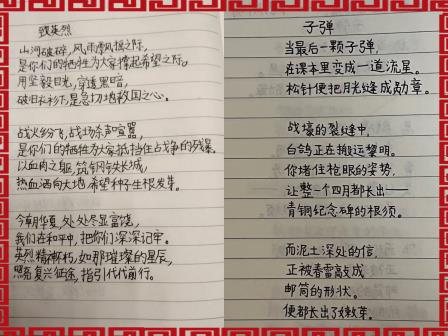 致英烈
山河破碎,风雨飘摇之际,
是你们的牺牲为大家撑起希望之际。
用坚毅目光,穿透黑暗,
破旧衫下,是急切地救国之心。
战火纷飞,战场杀声喧嚣,
是你们的牺牲为大家抵挡住战争的残暴。
以血肉之躯,筑钢铁长城,
热血洒向大地,希望种子生根发芽。
今朝华夏,处处尽显富饶,
我们在和平中,把你们深深记牢。
英烈精神不朽,如那璀璨的星辰,
照亮复兴征途,指引代代前行。
子弹
当最后一颗子弹,
在课本里变成一道流星。
松针便把月光缝成勋章。
战壕的裂缝中,
白鸽正在搬运黎明。
你堵住枪眼的姿势,
让整个四月都长出——
青铜纪念碑的根须。
而泥土深处的信,
正被春雷敲成
邮筒的形状。
便都长出了嫩芽。